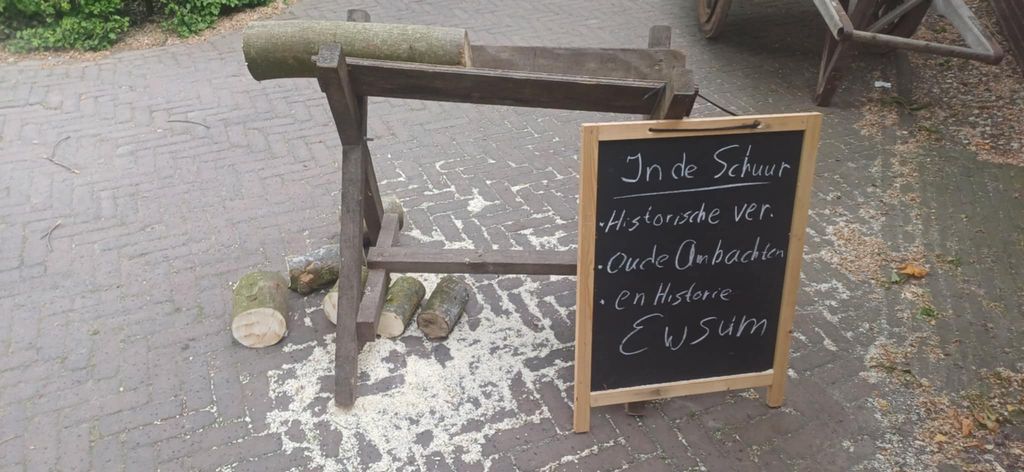 In de Schuur
• Historische ver.
• oude Ambachten
• en Historie
Ewsum